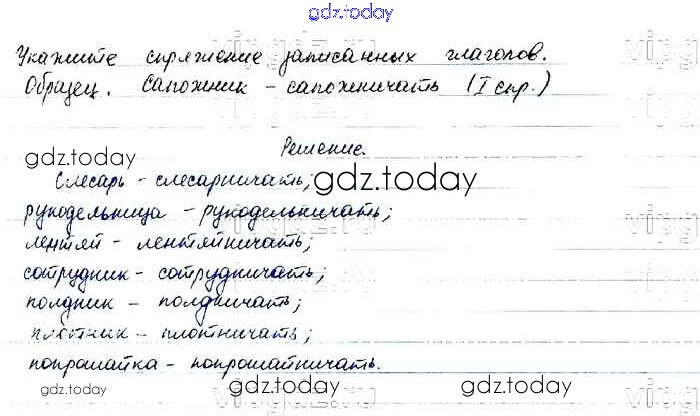 gdz.today
Укажите спряжение записанных глаголов.
Образец. Сапожник - сапожничать (I спр.)
Решение.
gdz.today
Слесарь - слесарничать;
gdz.today
рукодельница - рукодельничать;
лентяй - лентяйничать;
сотрудник - сотрудничать;
полдник - полдничать;
плотник - плотничать;
попрошайка - попрошайничать.
gdz.today gdz.today gdz.today